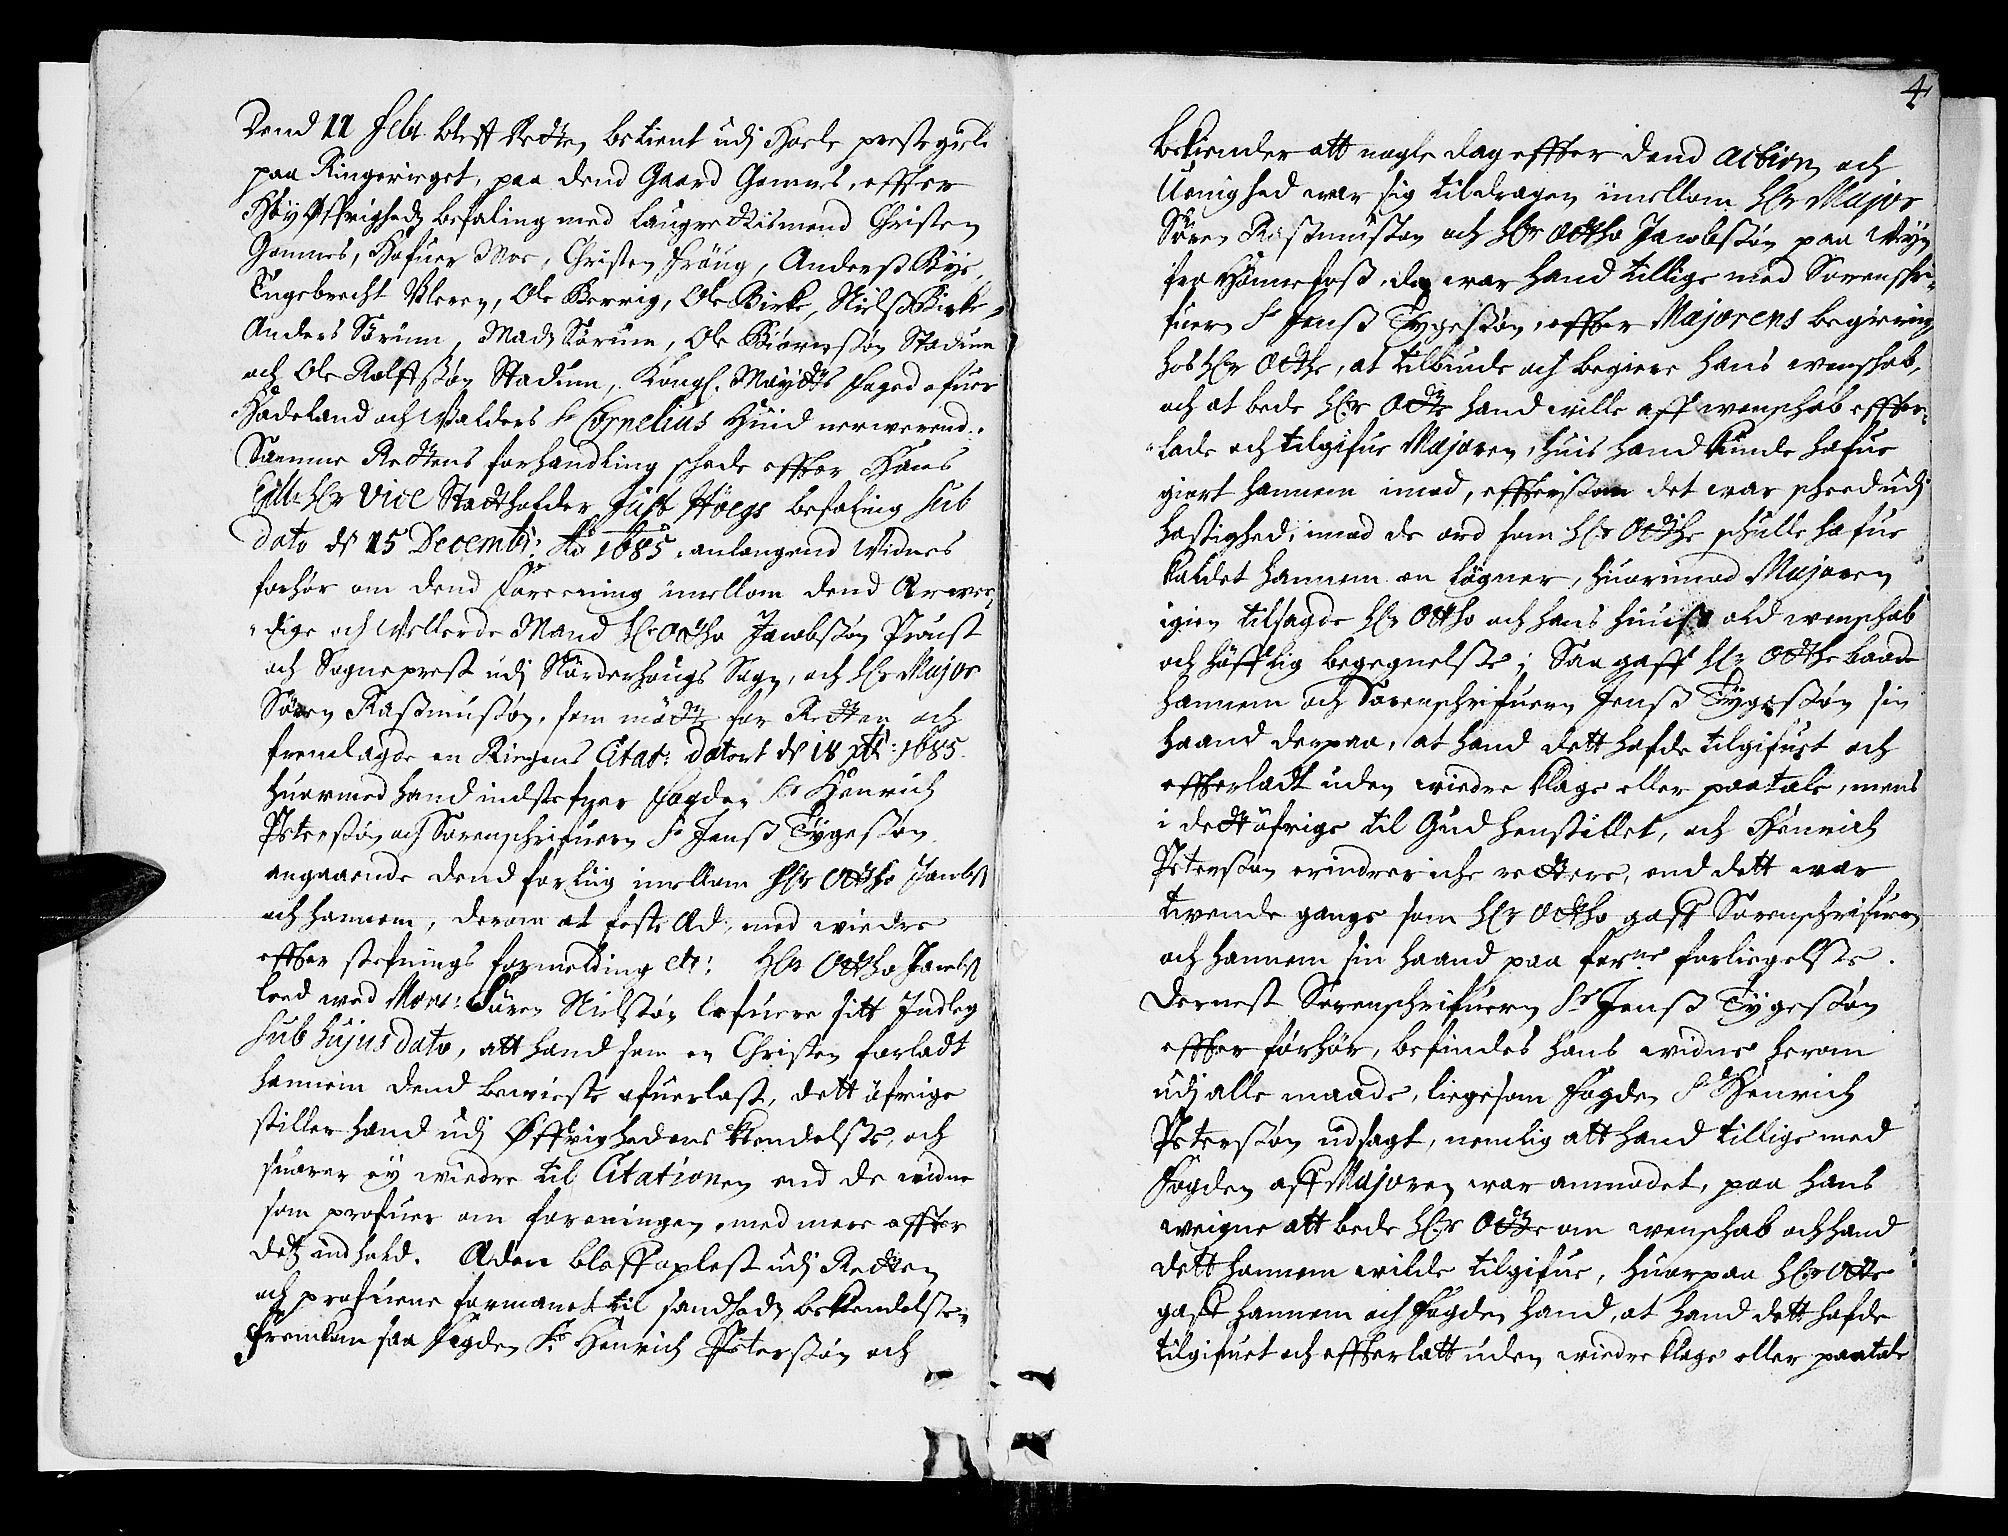 Dend 11 Febr: bleff Retten betient udj Hoele prestegield
paa Ringeriget, paa dend Gaard Gommes, effter
Høy Øffrigheds befaling med laugrettismend Christen
Gommes, Hafuor Moe, Christen Frøug, Anderss Bye,
Engebrecht Ulleren, Ole Berrig, Ole Birke, Nielss Birke,
Anders Sørum, Mads Sørum, Ole Biørnssøn Stadum
och Ole Rolffssøn Stadum, Kongl. Mayttz Foged ofuer
Hadeland och Walders Sr Cornelius Huid nerwerend.
Samme Rettens forhandling schede effter Hans
Excell: Hr Vice Stadtholder Just Høegs befaling sub
dato d 15 Decembr: Ao 1685. anlangend Widnes
forhør om dend foreening imellom dend Ærwer-
dige och Wellerde Mand Hr Ottho Jacobssøn Proust
och Sogneprest udj Nørderhougs Sogn, och Hr Major
Søren Rassmussøn, som mødte for Retten och
fremlagde en Riegens Citat: datert d 18 Xbr: 1685.
Huormed hand indstefner Fogden Sr Henrich
Pterssøn och Sorenschrifueren Sr Jenss Tygessøn
angaaende dend forliig imellom Hr Ottho Jacobss
och hannem, derom at feste Æd, med wiedre
effter stefnings formelding etc: Hr Ottho Jacobss
loed wed Mons: Søren Nielssøn lefuere sitt Indleg
sub hujus dato, att hand som en Christen forladt
hannem dend bewieste ofuerlast, dett øfrige
stiller hand udj Øffrighedens Kiendelsse, och
suarer ey wiedre til Citationen end de widne
som profuer om foreningen, med mere effter
detz indhold. Æden bleff oplest udj Retten
och profuene formanet til sandheds bekiendelsse,
Fremkom saa fogden Sr Henrich Pterssøn och
4
bekiender att nogle dag effter dend action och
Uenighed war sig tildragen imellom Hr Major
Søren Rassmussøn och Hr Ottho Jacobssøn paa Weyen
fra Hønnefoss, da war hand tillige med Sorenschri-
fueren Sr Jenss Tygessøn, effter Majorens begiering
hos Hr Otthe, at tilbiude och begiere hans wenschab,
och at bede Hr Otte hand wille aff wenschab effter-
lade och tilgifue Majoren, huis hand kunde hafue
giort hannem imod, effterssom det war scheed udj
hastighed, imod de ord som Hr Otthe schulle hafue
kaldet hannem en løgner, huorimod Majoren
igien tilsagde Hr Ottho och hans huuss ald wenschab
och høfflig begegnelsse; Saa gaff Hr Otthe baade
hannem och Sorenschrifueren Jenss Tygessøn sin
haand derpaa, at hand dett hafde tilgifuet och
effterladt uden wiedre klage eller paatale, mens
i dett øfrige til Gud henstillet, och Henrich
Pterssøn erindrer iche rettere, end dett war
twende gange som Hr Ottho gaff Sorenschrifueren
och hannem sin haand paa forne forliegelsse.
Dernest Sorenschrifueren Sr Jenss Tygessøn
effter forhør, befindes hans widne herom
udj alle maade, liegesom Fogden Sr Henrich
Pterssøn udsagt, nemlig att hand tillige med
Fogden aff Majoren war anmodet, paa hans
weigne att bede Hr Otte om wenschab och hand
dett hannem wilde tilgifue, huorpaa Hr Otte
gaff hannem och Fogden haand, at hand dett hafde
tilgifuet och effterlatt uden wiedre klage eller paatale